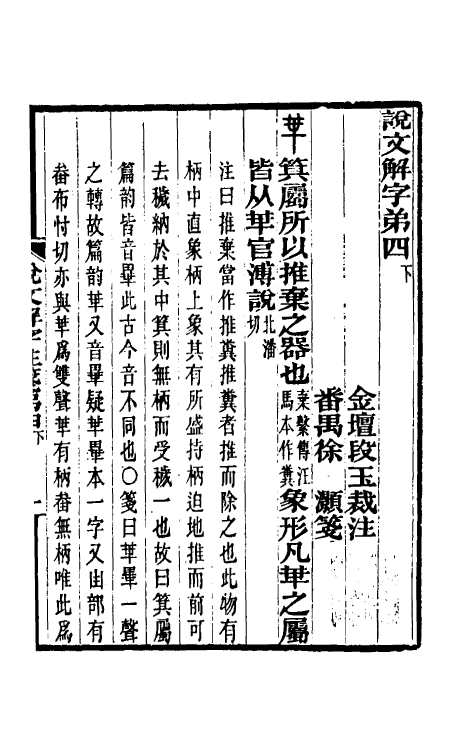 說文解字弟四下
金壇段玉裁注
番禺徐灝箋
𠦒箕屬所以推棄之器也棄繫傳汪馬本作糞象形凡𠦒之屬
皆从𠦒官溥說北潘切
注曰推棄當作推糞推糞者推而除之也此物有
柄中直象柄上象其有所盛持柄迫地推而前可
去穢納於其中箕則無柄而受穢一也故曰箕屬
篇韵皆音畢此古今音不同也○箋曰𠦒畢一聲
之轉故篇韵𠦒又音畢疑𠦒畢本一字又甶部有
㽕布忖切亦與𠦒爲雙聲𠦒有柄㽕無柄唯此爲
說文解字注箋弟四下
一